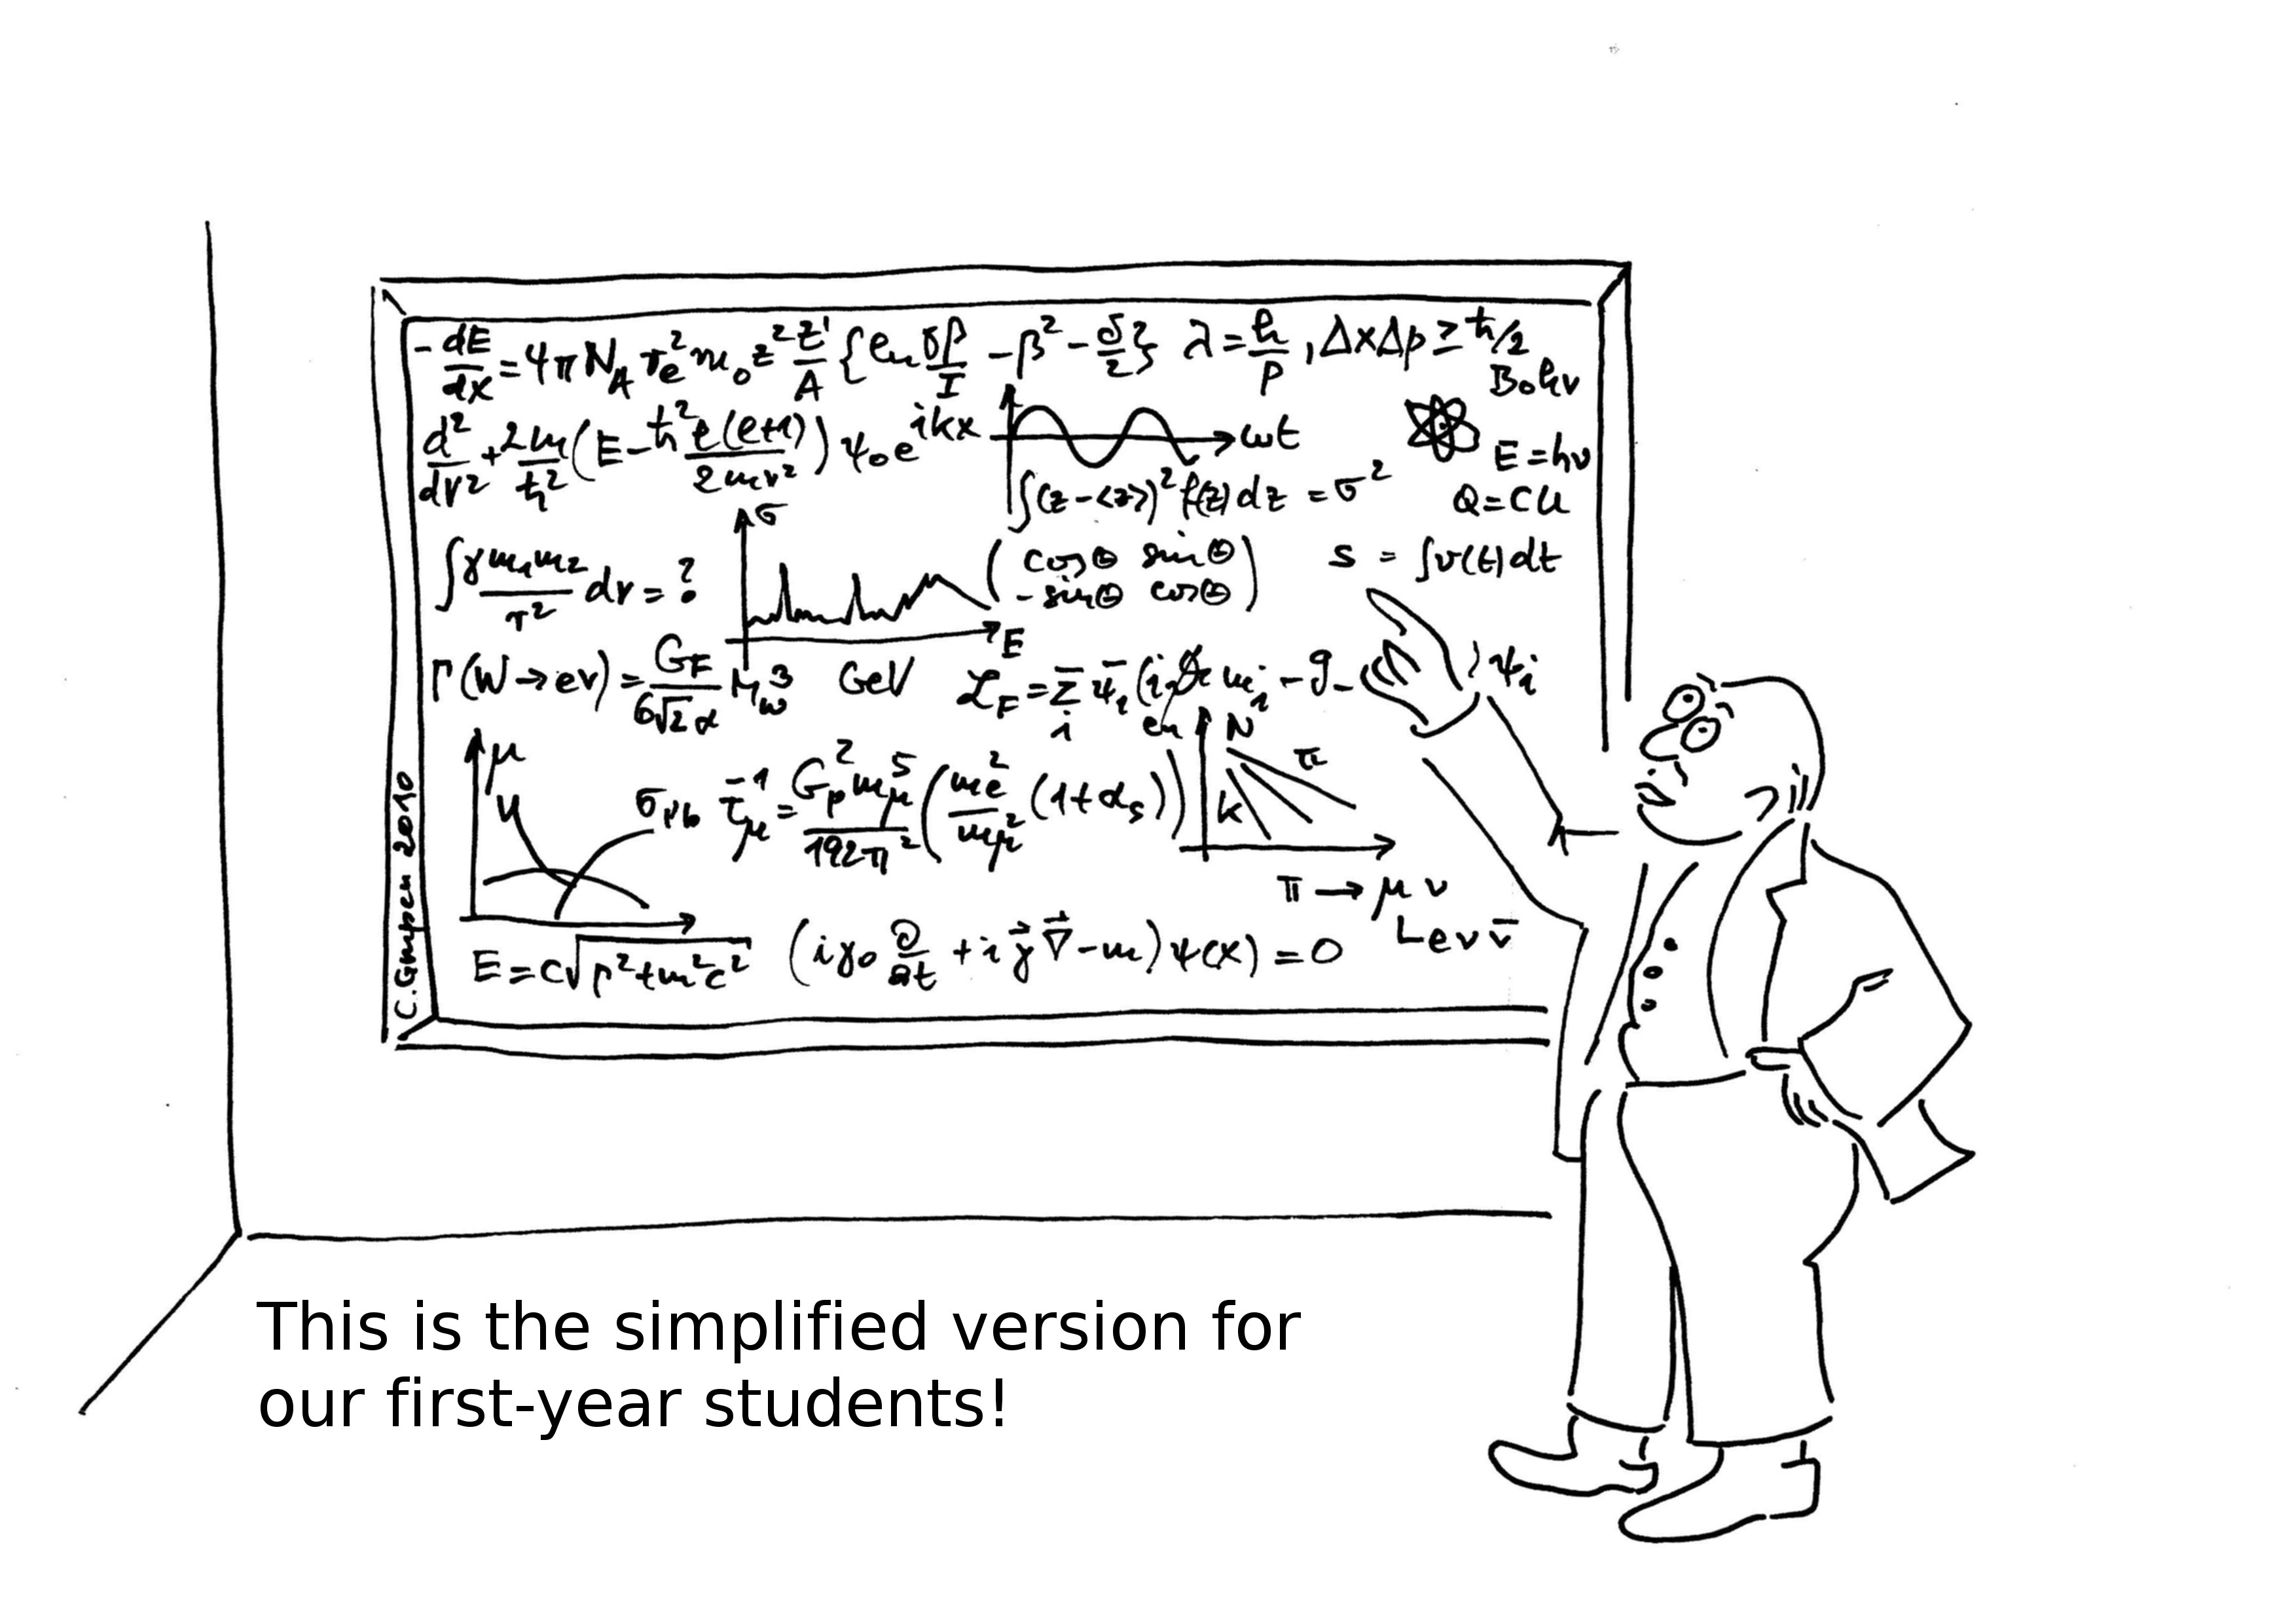 -dE/dx = 4πN_A r_e² m₀ z² Z/A {ln δβ/I - β² - δ/2} λ = h/p, ΔxΔp ≥ ħ/2
Bohr
d²/dr² + 2m/ħ² (E - ħ² ℓ(ℓ+1)/2mr²) ψ₀e^ikx
ωt
E = hν
∫(z-<z>)² f(z) dz = σ²
Q = CU
σ
∫ γm₁m₂/r² dr = ?
E
( cosΘ sinΘ
-sinΘ cosΘ )
s = ∫v(t)dt
Γ(W→eν) = G_F/6√2α M_W³ GeV
L_F = Σ_i ψ̄_i (i∂̸ m_i - g- ) ψ_i
μ
σ_Ph τ_μ⁻¹ = G_F² m_μ⁵/192π² (m_e²/m_μ² (1+α_s))
ln N
π
K
π → μ ν
L e ν ν̄
E = c√p²+m²c² (iγ₀ ∂/∂t + iγ⃗∇⃗ - m) ψ(x) = 0
C. Grupen 2010
This is the simplified version for
our first-year students!